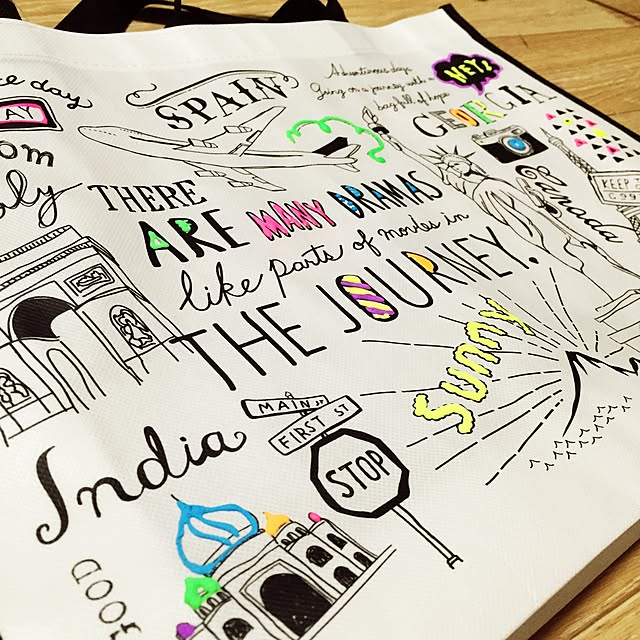 day
AY
om
aly
SPAIN
Adventurous days
Going on a journey with
a bag full of hope
HEY!
GEORGIA
KEEP
FOR
Canada
THERE
ARE MANY DRAMAS
like parts of movies in
THE JOURNEY.
SUNNY
MAIN ST
FIRST ST
STOP
India
GOOD